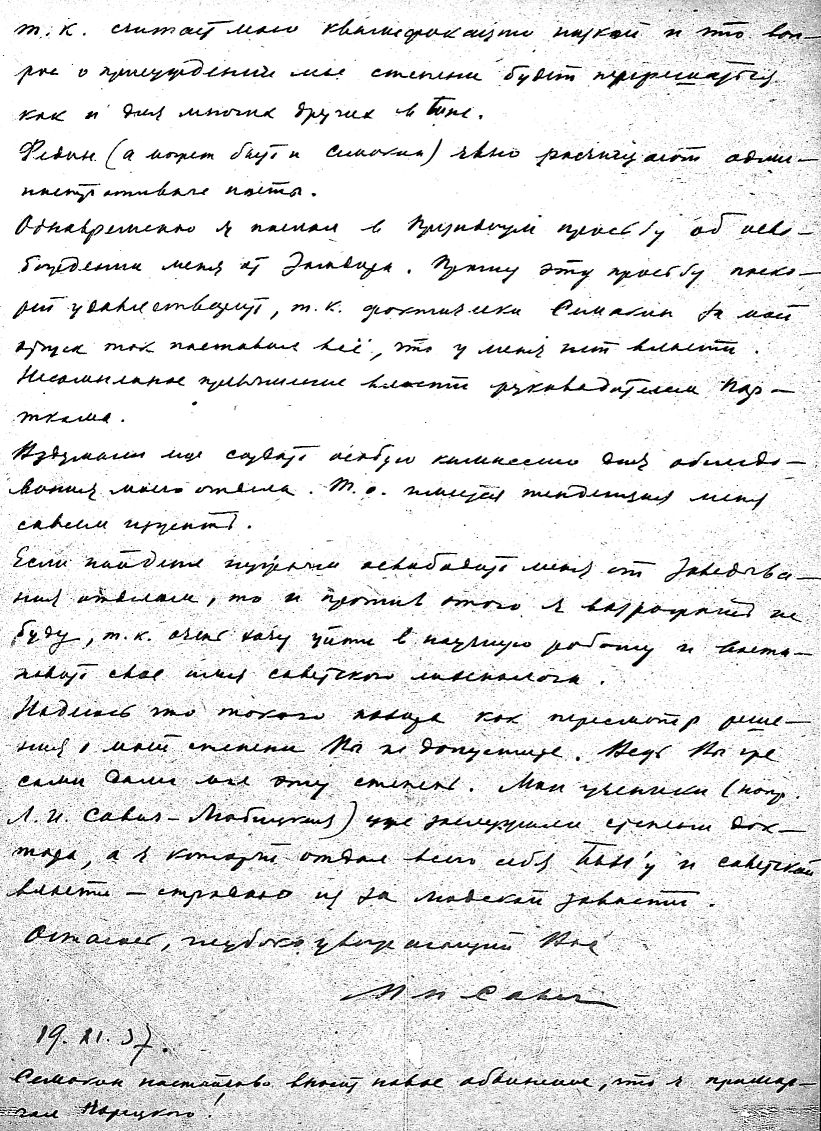 т. к. считает мою квалификацию низкой и что воп-
рос о присуждении мне степени будет перерешаться
как и для многих других в Бине.
Федин (а может быть и Семакин) явно расчищают адми-
нистративные посты.
Одновременно я послал в Президиум просьбу об осво-
бождении меня от Замдира. Прошу эту просьбу поско-
рей удовлетворить, т. к. фактически Семакин за мой
отпуск так поставил всё, что у меня нет власти.
Несомненное превышение власти руководителем Пар-
ткома.
Вздумали ещё создать особую комиссию для обследо-
вания моего отдела. Т. о. имеется тенденция меня
совсем изъять.
Если найдете нужным освободить меня от Заведыва-
ния отделом, то и против этого я возражать не
буду, т. к. очень хочу уйти в научную работу и восста-
новить свое имя советского
Надеюсь что такого позора как пересмотр реше-
ния о моей степени Вы не допустите. Ведь Вы же
сами дали мне эту степень. Мои ученики (напр.
Л. И. Савич-Любицкая) уже заслужили степень док-
тора, а я который отдал всего себя БИН'у и советской
власти — страдаю из за людской зависти.
Остаюсь, глубоко уважающий Вас
Савич
19. XI. 37.
Семакин настойчиво вносит новое обвинение, что я проморгал